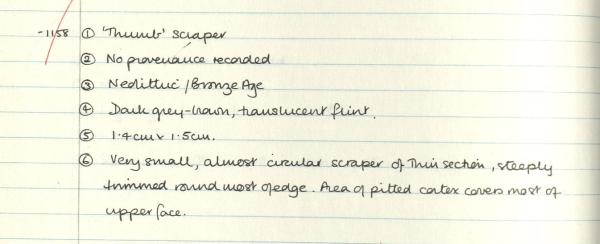 -1158 ① 'Thumb' scraper
② No provenance recorded
③ Neolithic / Bronze Age
④ Dark grey-brown, translucent flint.
⑤ 1.4cm x 1.5cm.
⑥ Very small, almost circular scraper of thin section, steeply
trimmed round most of edge. Area of pitted cortex covers most of
upper face.